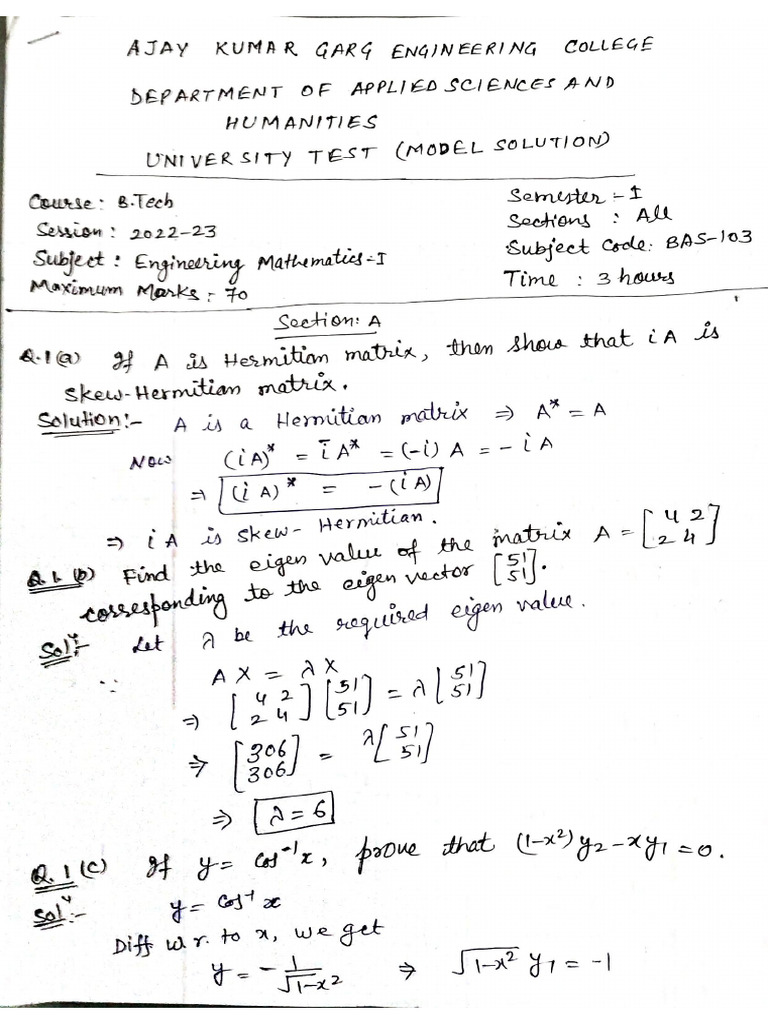 AJAY KUMAR GARG ENGINEERING COLLEGE
DEPARTMENT OF APPLIED SCIENCES AND
HUMANITIES
UNIVERSITY TEST (MODEL SOLUTION)
Course: B.Tech Semester - I
Session: 2022-23 Sections : All
Subject : Engineering Mathematics-I Subject Code: BAS-103
Maximum Marks: 70 Time : 3 hours
Section: A
Q.1(a) If A is Hermitian matrix, then show that iA is
Skew-Hermitian matrix.
Solution:- A is a Hermitian matrix ⇒ A* = A
Now (iA)* = i̅ A* = (-i) A = - iA
⇒ (iA)* = -(iA)
⇒ iA is Skew-Hermitian.
Q1.(b) Find the eigen value of the matrix A = [4 2
2 4]
corresponding to the eigen vector [51
51].
Solⁿ:- Let λ be the required eigen value.
∵ AX = λX
⇒ [4 2
2 4] [51
51] = λ [51
51]
⇒ [306
306] = λ [51
51]
⇒ λ = 6
Q.1(c) If y = cos⁻¹x, prove that (1-x²)y₂ - xy₁ = 0.
Solⁿ:- y = cos⁻¹ x
Diff w.r. to x, we get
y = - 1/√1-x² ⇒ √1-x² y₁ = -1